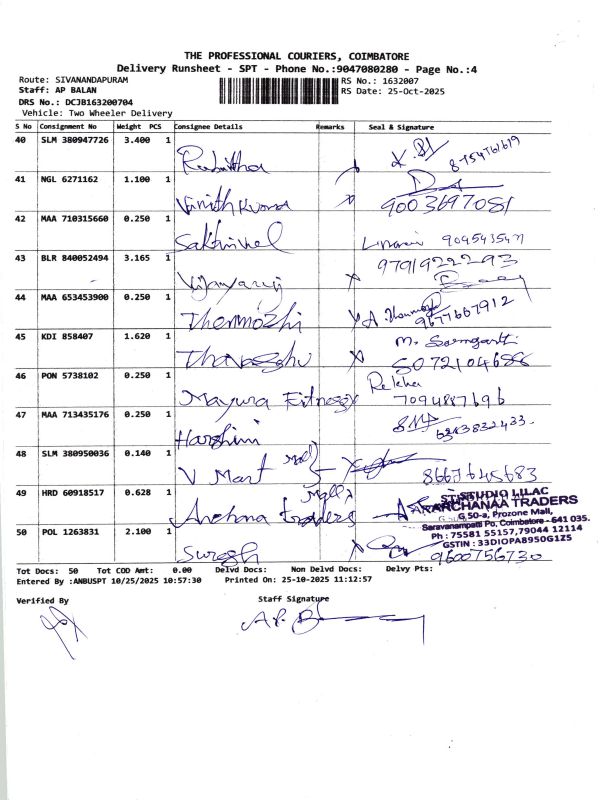 THE PROFESSIONAL COURIERS, COIMBATORE
Delivery Runsheet - SPT - Phone No.:9047080280 - Page No.:4
Route: SIVANANDAPURAM RS No.: 1632007
Staff: AP BALAN RS Date: 25-Oct-2025
DRS No.: DCJB163200704
Vehicle: Two Wheeler Delivery
S No Consignment No Weight PCS Consignee Details Remarks Seal & Signature
40 SLM 380947726 3.400 1
41 NGL 6271162 1.100 1 9003697081
42 MAA 710315660 0.250 1 Sakthivel
43 BLR 840052494 3.165 1 9791922293
44 MAA 653453900 0.250 1 Thenmozhi 9677667912
45 KDI 858407 1.620 1
46 PON 5738102 0.250 1 Mayura Fitness Rekha 7094887696
47 MAA 713435176 0.250 1 Harshini
48 SLM 380950036 0.140 1 V Mart 8667645683
49 HRD 60918517 0.628 1 Archana traders
STUDIO LILAC
ARCHANAA TRADERS
G,50-a, Prozone Mall,
Saravanampatti Po, Coimbatore - 641 035.
Ph : 75581 55157,79044 12114
GSTIN : 33DIOPA8950G1Z5
50 POL 1263831 2.100 1 Suresh 9600756730
Tot Docs: 50 Tot COD Amt: 0.00 Delvd Docs: Non Delvd Docs: Delvy Pts:
Entered By :ANBUSPT 10/25/2025 10:57:30 Printed On: 25-10-2025 11:12:57
Verified By Staff Signature